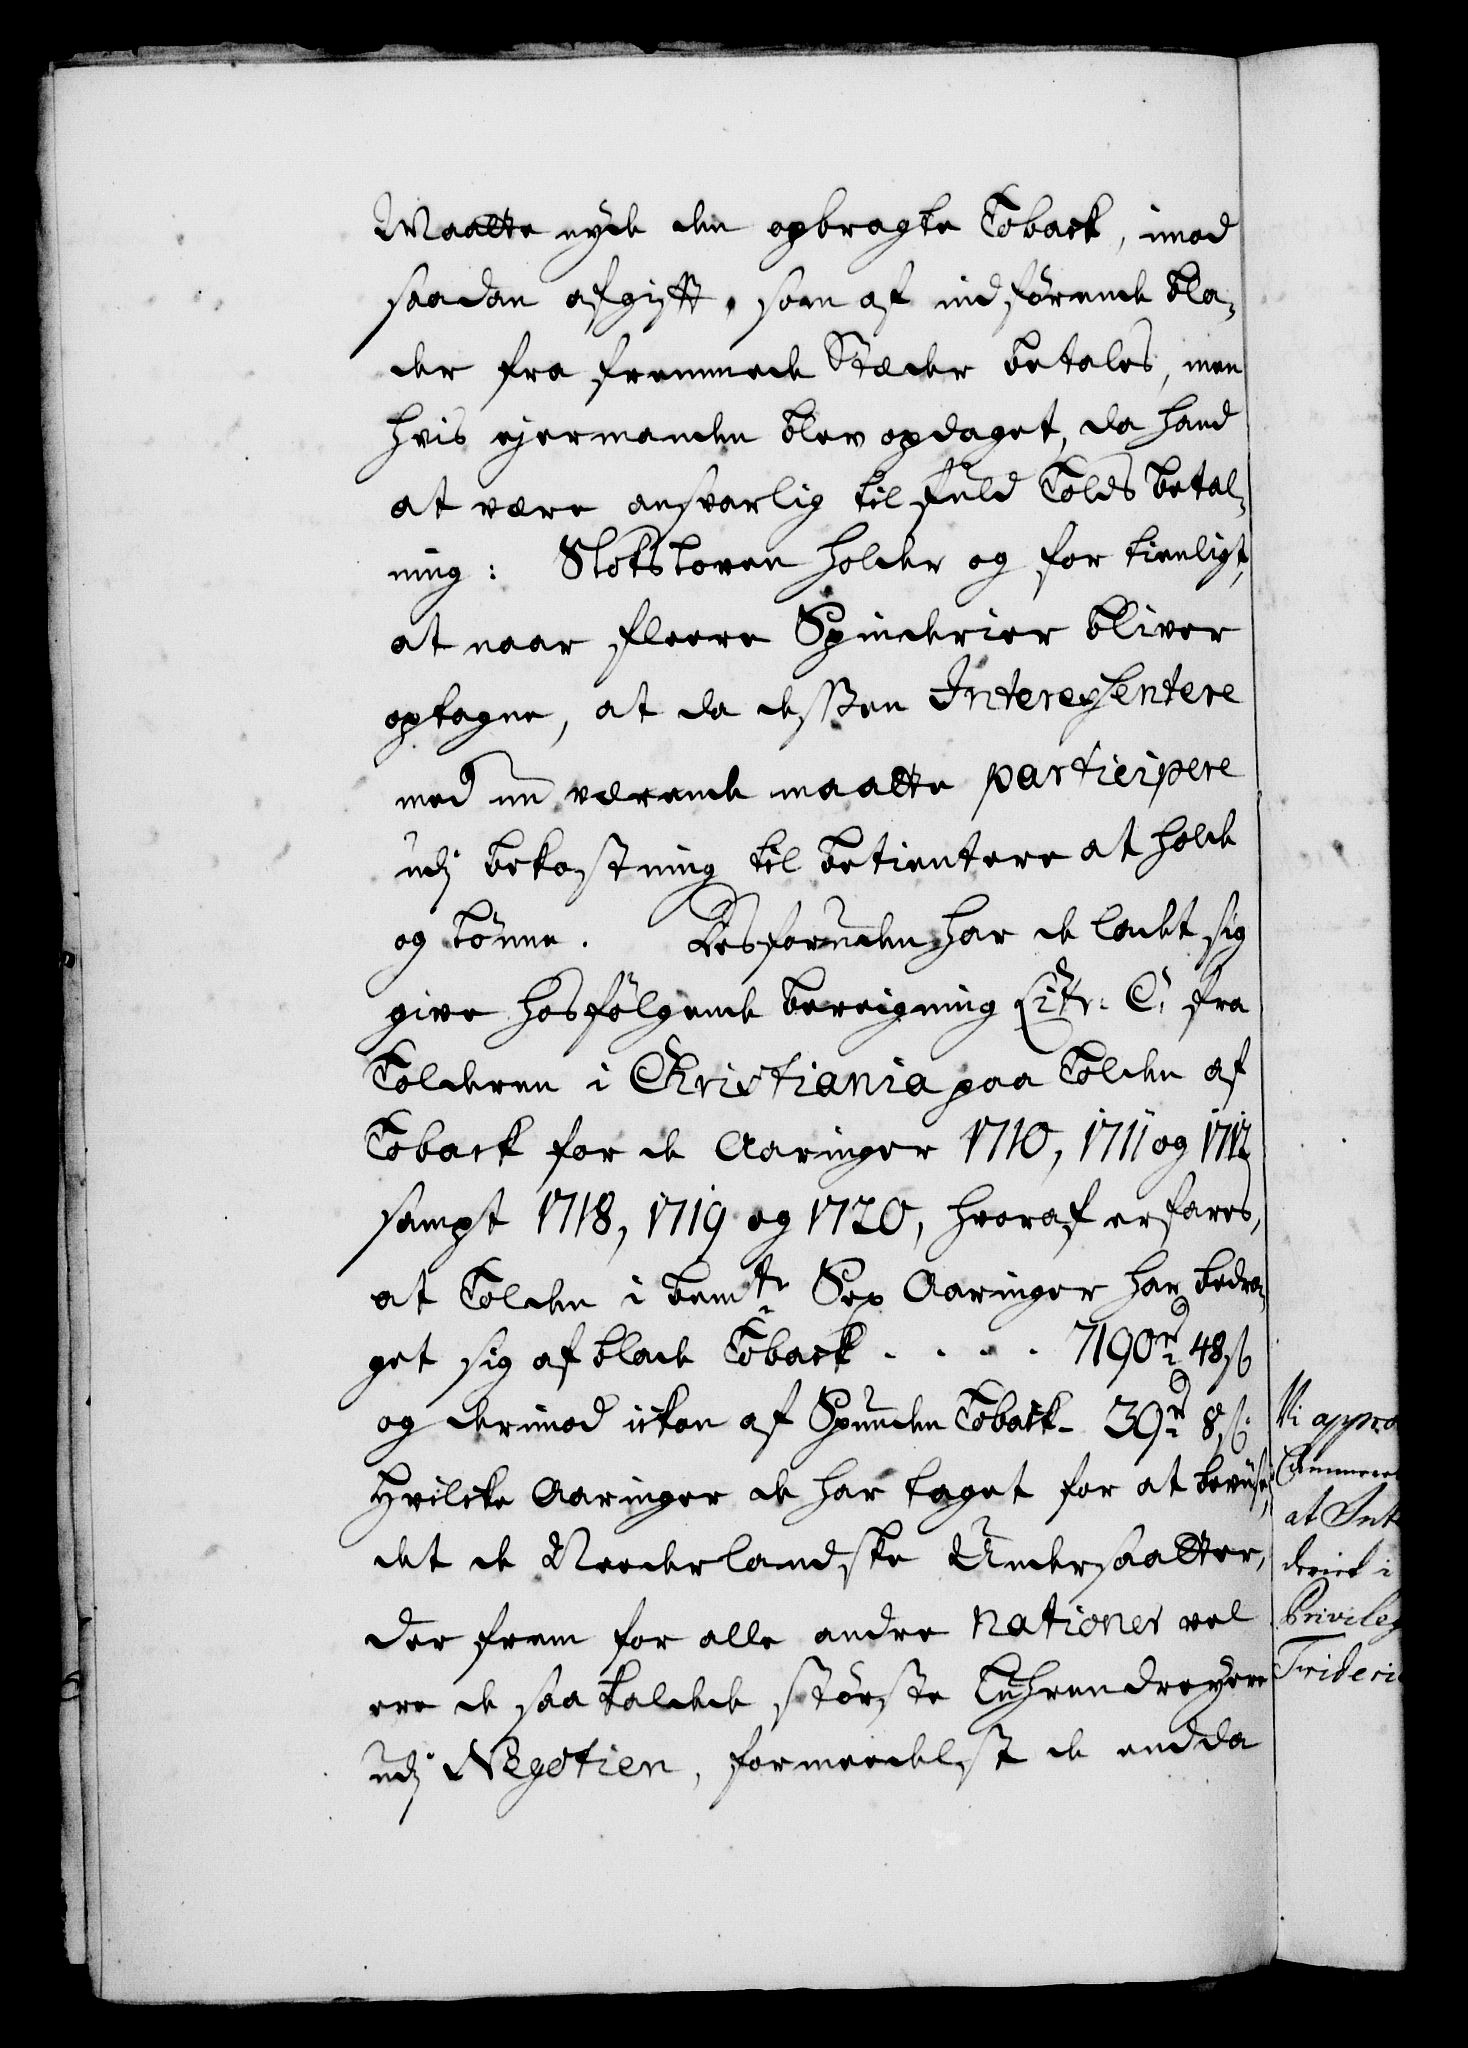 Maatte nyde den opbragte Toback, imod
saadan afgift, som af indförende bla¬
der fra fremmede Stæder betales, men
hvis ejermanden blev opdaget, da hand
at være ansvarlig til fuld Tolds betal¬
ning: Slotsloven holder og for tienligt,
at naar fleere Spinderier bliver
optagne, at da dessen Interessentere
med nu værende maatte participere
udj bekostning til betientere at holde
og lönne. Desforuden har de ladet sig
give hosfölgende beregning Litr: C. fra
Tolderen i Christiania paa Tolden af
Toback for de Aaringer 1710, 1711 og 1712
sampt 1718, 1719 og 1720, hvoraf erfares,
at Tolden i bemte Sex Aaringer har bedra¬
get sig af blade Toback . . . . 7190 rd 48 ß
og derimod icken af Spunden Toback - 39 rd 8 ß.
Hvilcke Aaringer de har taget for at bevise,
det de Neederlandske Undersaatter,
der frem for alle andre Nationer vel
ere de saa kaldede störste Lührendreyere
udj Negotien, formedelst de endda
Vi appro
Commerce
at Int
deriet i
Privileg
Frideric